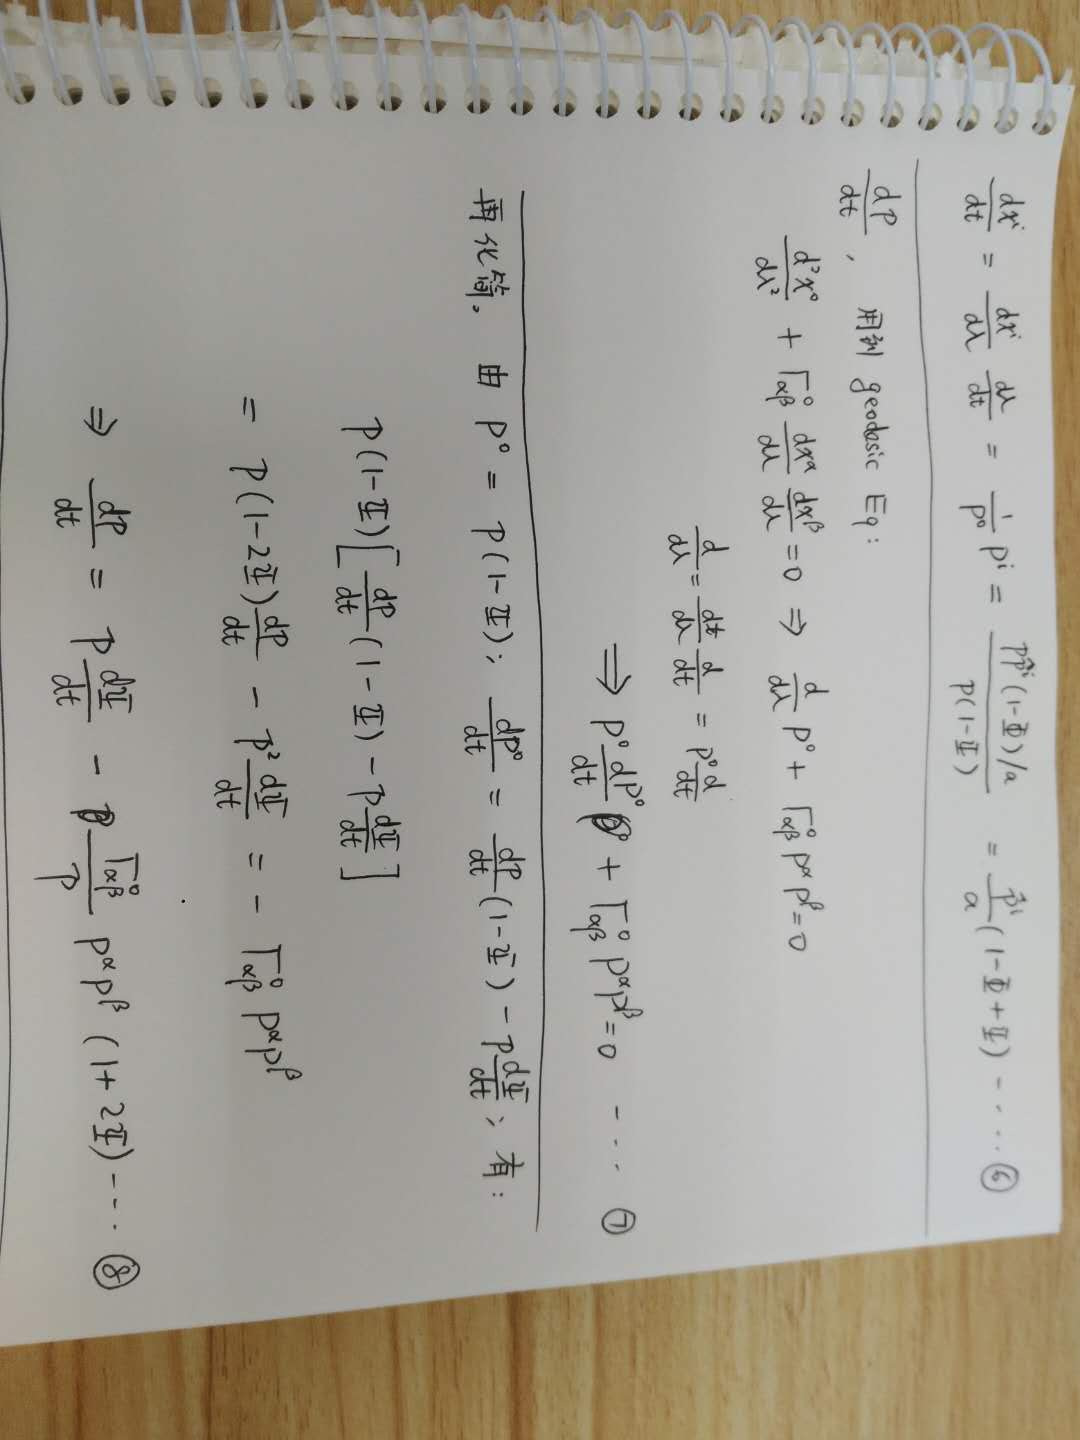 dxⁱ/dt = dxⁱ/dλ dλ/dt = 1/p⁰ pⁱ = pp̂ⁱ(1-Φ)/a / p(1-Ψ) = p̂ⁱ/a (1-Φ+Ψ) ---- ⑥
dp/dt, 用到 geodesic Eq:
d²x⁰/dλ² + Γ⁰αβ dxᵅ/dλ dxᵝ/dλ = 0 ⇒ d/dλ p⁰ + Γ⁰αβ pᵅpᵝ = 0
d/dλ = dt/dλ d/dt = p⁰ d/dt
⇒ p⁰ dp⁰/dt + Γ⁰αβ pᵅpᵝ = 0 --- ⑦
再化简。 由 p⁰ = p(1-Ψ); dp⁰/dt = dp/dt (1-Ψ) - p dΨ/dt; 有:
p(1-Ψ)[dp/dt (1-Ψ) - p dΨ/dt]
= p(1-2Ψ) dp/dt - p² dΨ/dt = - Γ⁰αβ pᵅpᵝ
⇒ dp/dt = p dΨ/dt - Γ⁰αβ/p pᵅpᵝ (1+2Ψ) --- ⑧